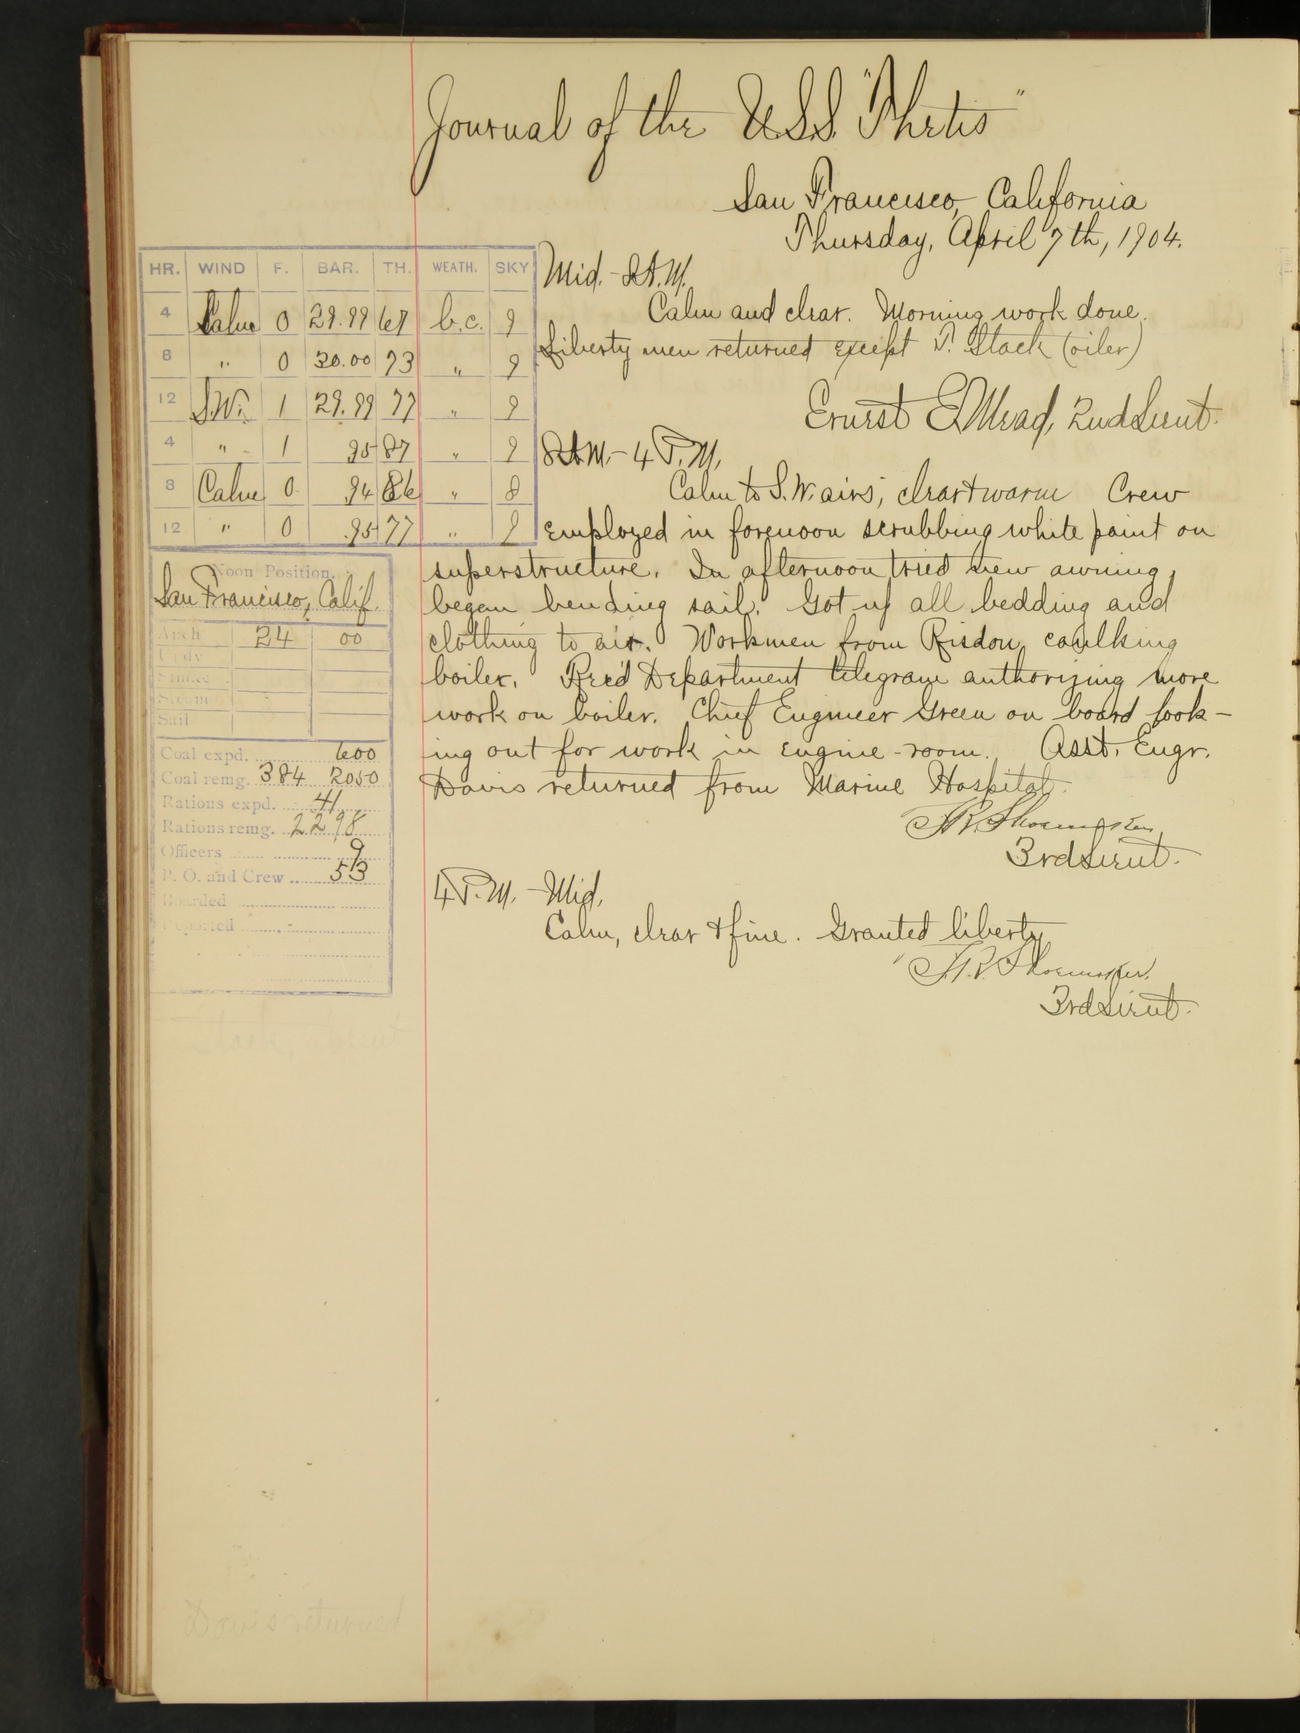 Journal of the U.S.S. "Thetis"
San Francisco, California
Thursday, April 7th, 1904.
HR. WIND F. BAR. TH. WEATH. SKY
4 Calm 0 29.99 67 b.c. 9
8 " 0 30.00 73 " 9
12 S.W. 1 29.99 77 " 9
4 " 1 .95 87 " 9
8 Calm 0 .94 86 " 8
12 " 0 .95 77 " 9
Mid. - 8 A.M.
Calm and clear. Morning work done.
Liberty men returned except T. Stack (oiler)
Ernest E. Mead, 2nd Lieut.
8 A.M. - 4 P.M.
Calm to S.W. airs; clear + warm Crew
employed in forenoon scrubbing white paint on
superstructure. In afternoon tried new awning,
began bending sail. Got up all bedding and
clothing to air. Workmen from Risdon caulking
boiler. Rec'd Department telegram authorizing more
work on boiler. Chief Engineer Green on board look-
ing out for work in engine-room. Asst. Engr.
Davis returned from Marine Hospital.
F.R. Shoemaker
3rd Lieut.
4 P.M. - Mid.
Calm, clear + fine. Granted liberty
F.R. Shoemaker.
3rd Lieut.
Noon Position.
San Francisco, Calif.
Anch 24 00
Undy
Steam
Sail
Coal expd. 600
Coal remg. 384 2050
Rations expd. 41
Rations remg. 2298
Officers 9
P. O. and Crew 53
Boarded
Reported
Stack, absent
Davis returned